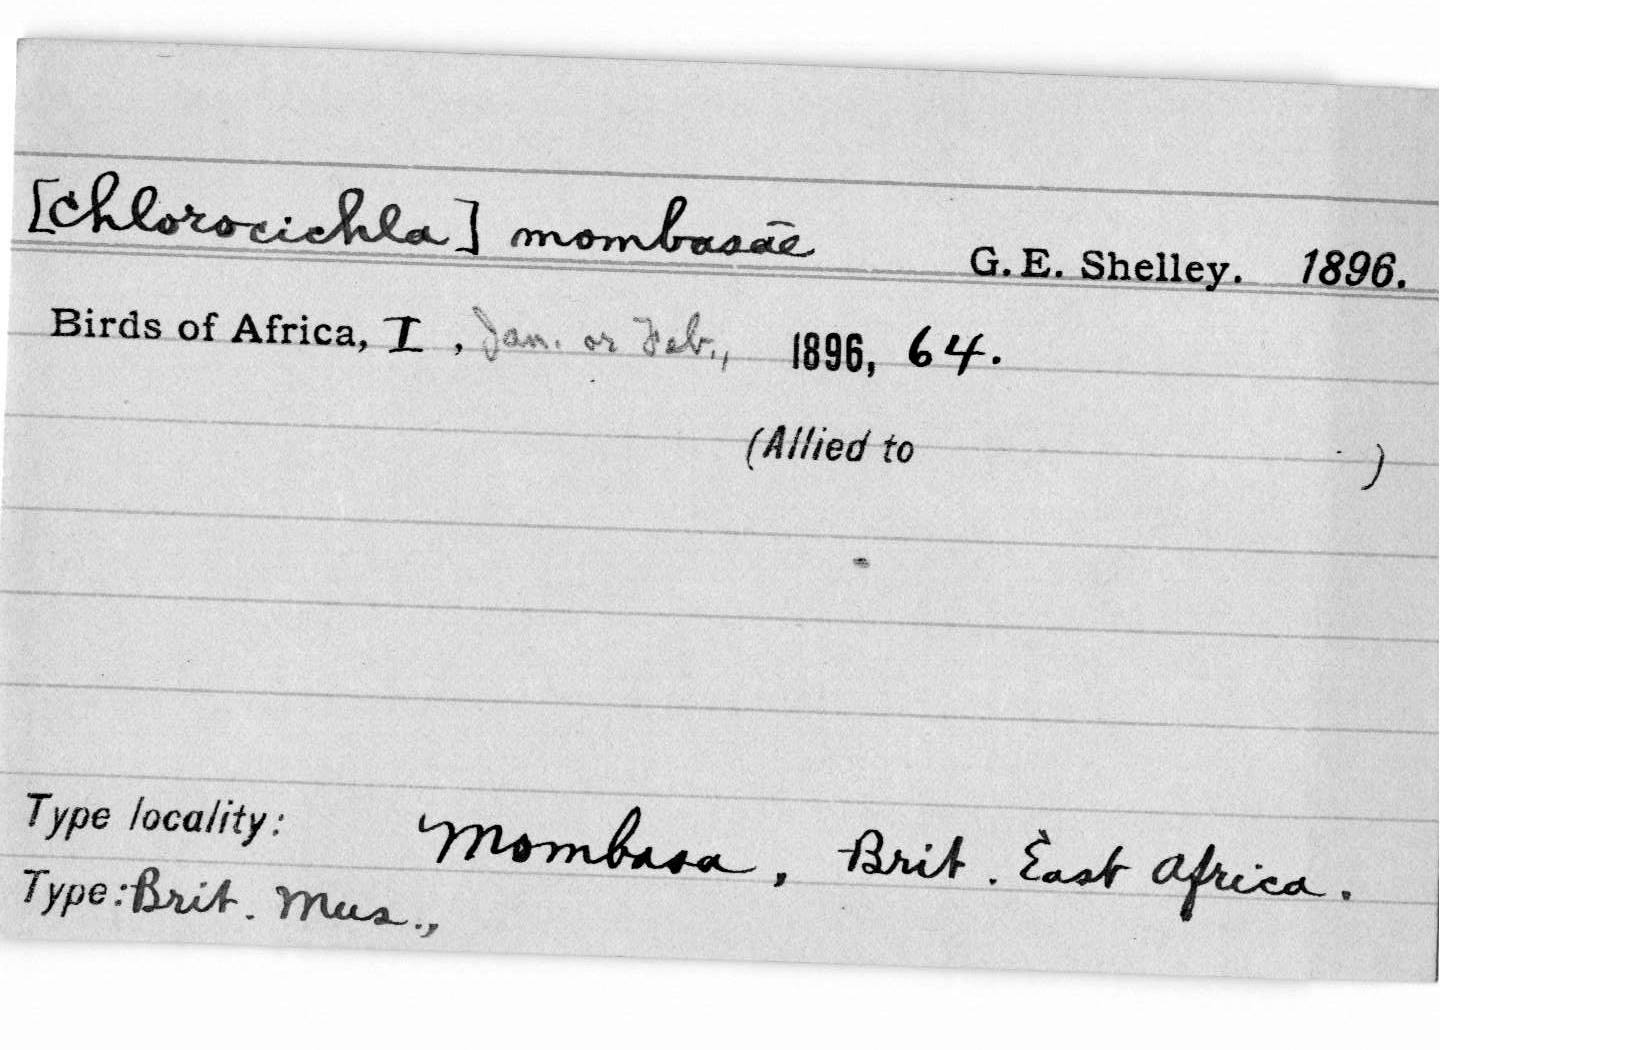 [Chlorocichla] mombasæ G. E. Shelley. 1896.
Birds of Africa, I, Jan. or Feb., 1896, 64.
(Allied to )
Type locality: Mombasa, Brit. East Africa.
Type: Brit. Mus.,